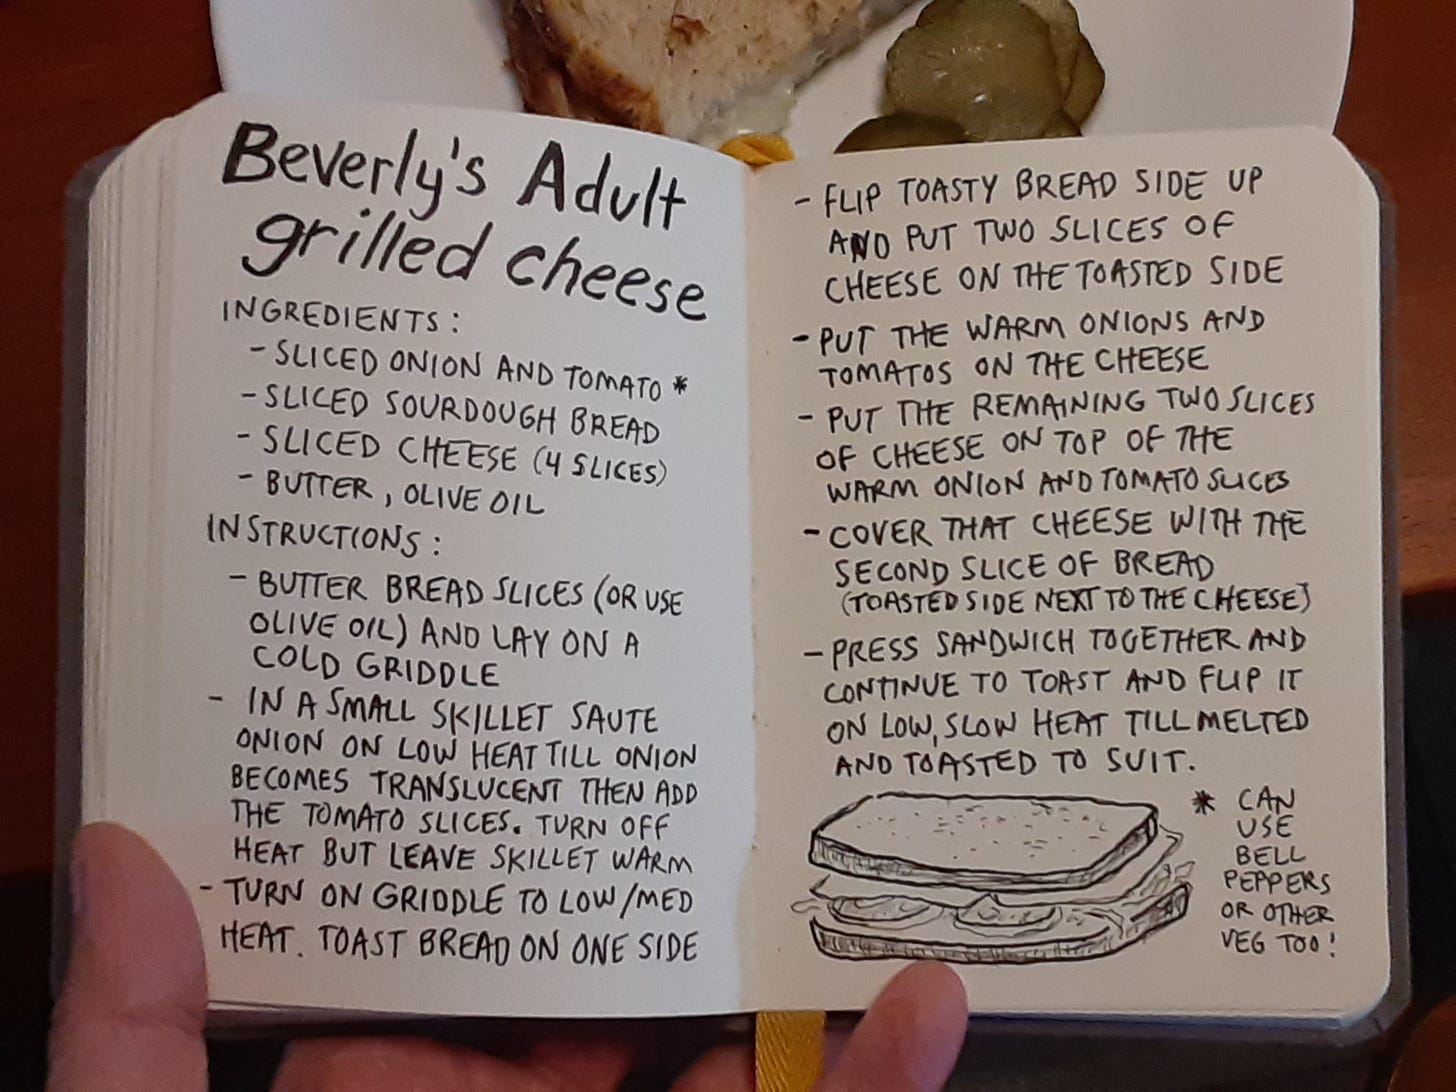 Beverly's Adult
grilled cheese
INGREDIENTS:
- SLICED ONION AND TOMATO *
- SLICED SOURDOUGH BREAD
- SLICED CHEESE (4 SLICES)
- BUTTER, OLIVE OIL
INSTRUCTIONS:
- BUTTER BREAD SLICES (OR USE
OLIVE OIL) AND LAY ON A
COLD GRIDDLE
- IN A SMALL SKILLET SAUTE
ONION ON LOW HEAT TILL ONION
BECOMES TRANSLUCENT THEN ADD
THE TOMATO SLICES. TURN OFF
HEAT BUT LEAVE SKILLET WARM
- TURN ON GRIDDLE TO LOW/MED
HEAT. TOAST BREAD ON ONE SIDE
- FLIP TOASTY BREAD SIDE UP
AND PUT TWO SLICES OF
CHEESE ON THE TOASTED SIDE
- PUT THE WARM ONIONS AND
TOMATOS ON THE CHEESE
- PUT THE REMAINING TWO SLICES
OF CHEESE ON TOP OF THE
WARM ONION AND TOMATO SLICES
- COVER THAT CHEESE WITH THE
SECOND SLICE OF BREAD
(TOASTED SIDE NEXT TO THE CHEESE)
- PRESS SANDWICH TOGETHER AND
CONTINUE TO TOAST AND FLIP IT
ON LOW, SLOW HEAT TILL MELTED
AND TOASTED TO SUIT.
* CAN
USE
BELL
PEPPERS
OR OTHER
VEG TOO!